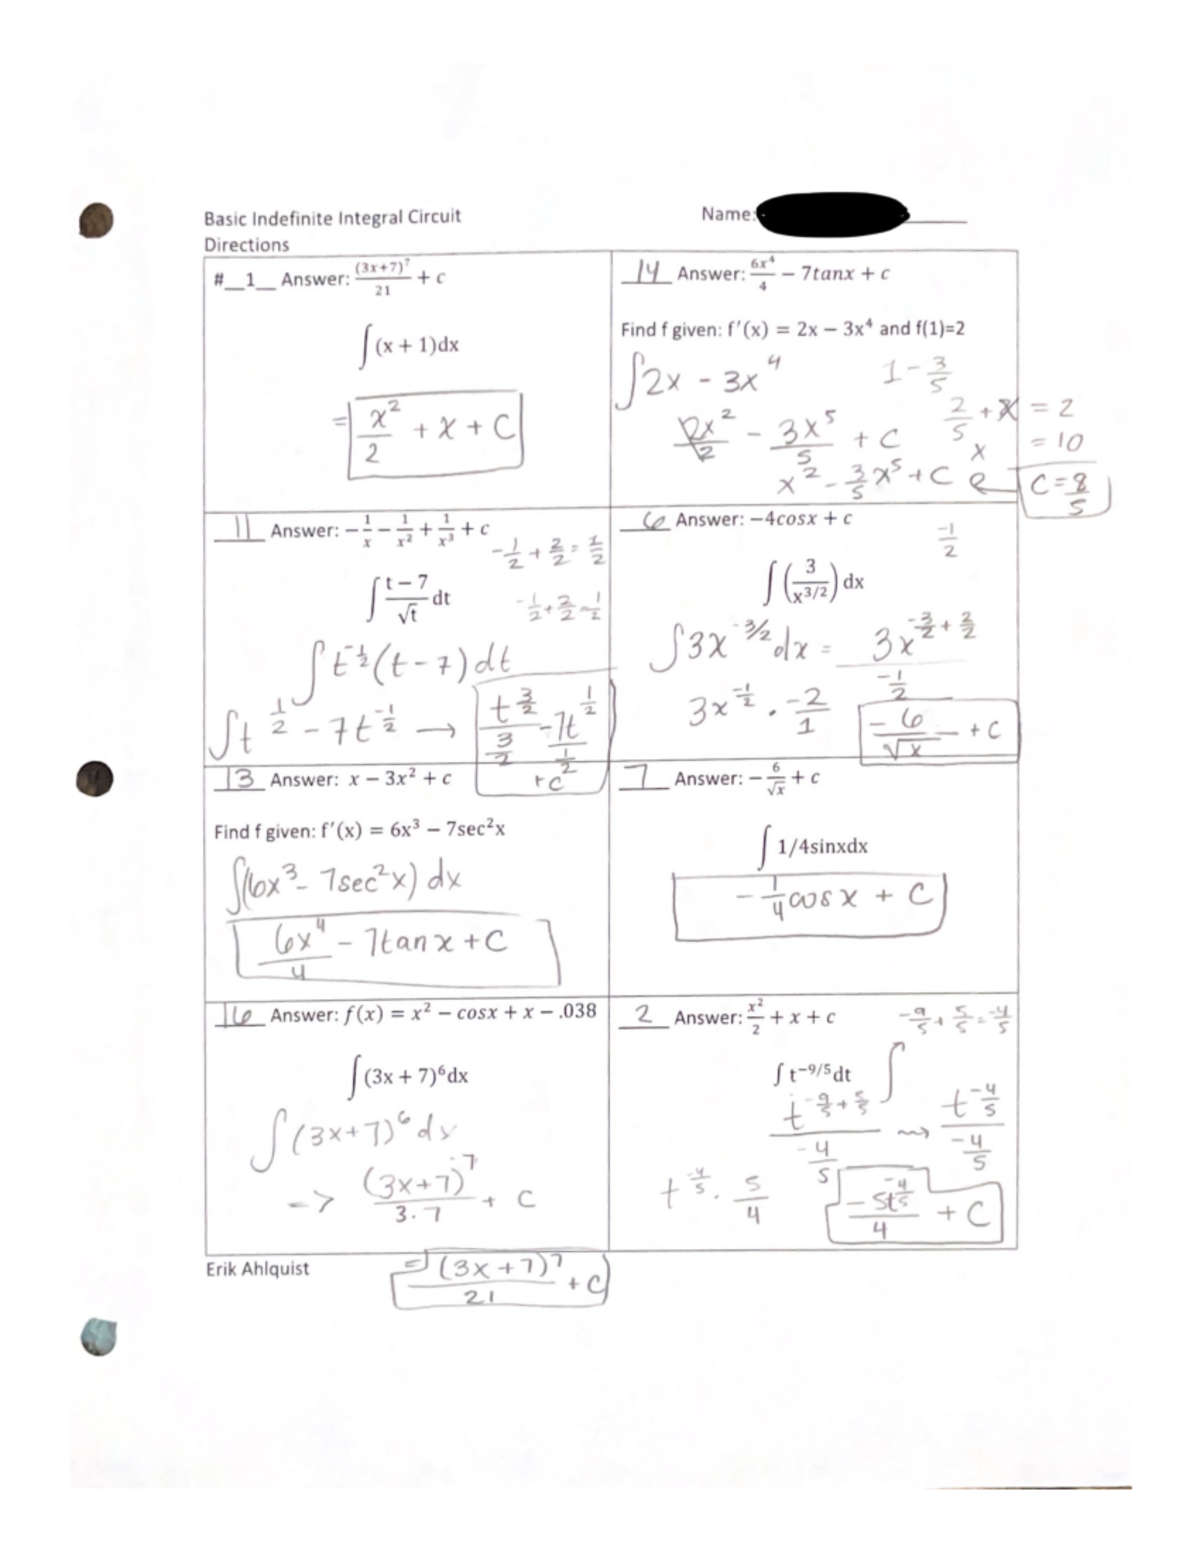 Basic Indefinite Integral Circuit
Name:
Directions
#__1__ Answer: (3x+7)⁷/21 + c
∫(x + 1)dx
= x²/2 + x + C
14 Answer: 6x⁴/4 − 7tanx + c
Find f given: f'(x) = 2x − 3x⁴ and f(1)=2
∫2x - 3x⁴
1 - 3/5
2/5 + x = 2
x = 10
2x²/2 - 3x⁵/5 + C
x² - 3/5 x⁵ + C
C = 8/5
11 Answer: −1/x − 1/x² + 1/x³ + c
-1/2 + 2/2 = 1/2
∫ t − 7/√t dt
-1/2 + 2/2 = 1/2
∫t^-1/2 (t - 7) dt
∫t^1/2 - 7t^-1/2 → t^3/2/3/2 - 7t^1/2/1/2
+C
6 Answer: −4cosx + c
-1/2
∫(3/x^3/2) dx
∫3x^-3/2 dx = 3x^-3/2 + 2/2 / -1/2
3x^-1/2 · -2/1
-6/√x + C
13 Answer: x − 3x² + c
Find f given: f'(x) = 6x³ − 7sec²x
∫(6x³ - 7sec²x) dx
6x⁴/4 - 7tanx + C
7 Answer: −6/√x + c
∫ 1/4sinxdx
-1/4 cosx + C
16 Answer: f(x) = x² − cosx + x − .038
∫(3x + 7)⁶dx
∫(3x+7)⁶ dx
=> (3x+7)⁷/3·7 + C
= (3x+7)⁷/21 + C
2 Answer: x²/2 + x + c
-9/5 + 5/5 = -4/5
∫ t^−9/5 dt
∫
t^-9/5 + 5/5 / -4/5 ⇝ t^-4/5 / -4/5
t^-4/5 · 5/4
-5t^-4/5/4 + C
Erik Ahlquist